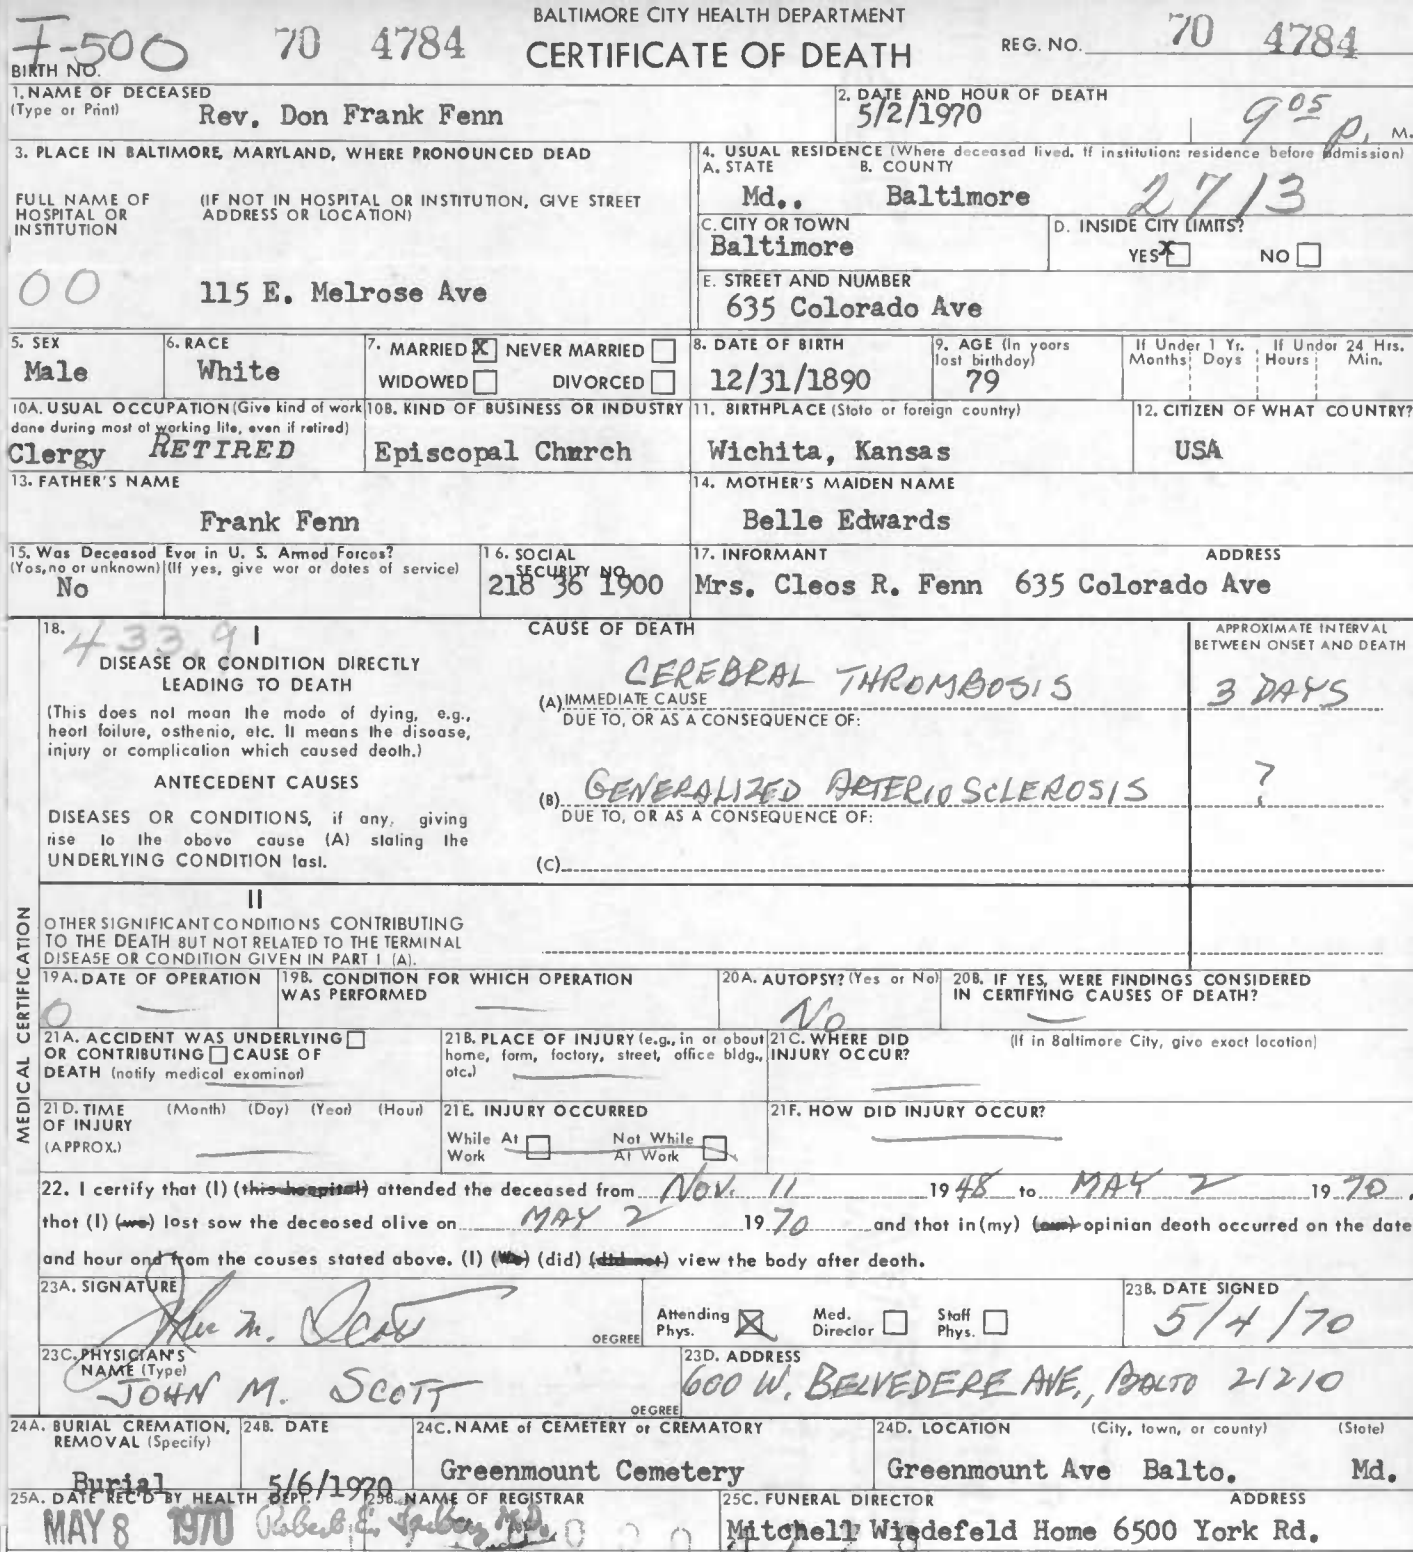 BALTIMORE CITY HEALTH DEPARTMENT
F-500 70 4784 CERTIFICATE OF DEATH REG. NO. 70 4784
BIRTH NO.
1. NAME OF DECEASED (Type or Print) Rev. Don Frank Fenn
2. DATE AND HOUR OF DEATH 5/2/1970 9 05 P. M.
3. PLACE IN BALTIMORE, MARYLAND, WHERE PRONOUNCED DEAD
FULL NAME OF HOSPITAL OR INSTITUTION (IF NOT IN HOSPITAL OR INSTITUTION, GIVE STREET ADDRESS OR LOCATION)
00 115 E. Melrose Ave
4. USUAL RESIDENCE (Where deceased lived. If institution: residence before admission)
A. STATE Md.. B. COUNTY Baltimore 2713
C. CITY OR TOWN Baltimore
D. INSIDE CITY LIMITS? YES X NO
E. STREET AND NUMBER 635 Colorado Ave
5. SEX Male
6. RACE White
7. MARRIED X NEVER MARRIED
WIDOWED DIVORCED
8. DATE OF BIRTH 12/31/1890
9. AGE (In years last birthday) 79
If Under 1 Yr. Months Days If Under 24 Hrs. Hours Min.
10A. USUAL OCCUPATION (Give kind of work done during most of working life, even if retired) Clergy RETIRED
10B. KIND OF BUSINESS OR INDUSTRY Episcopal Church
11. BIRTHPLACE (State or foreign country) Wichita, Kansas
12. CITIZEN OF WHAT COUNTRY? USA
13. FATHER'S NAME Frank Fenn
14. MOTHER'S MAIDEN NAME Belle Edwards
15. Was Deceased Ever in U. S. Armed Forces? (Yes, no or unknown) (If yes, give war or dates of service) No
16. SOCIAL SECURITY NO. 218 36 1900
17. INFORMANT ADDRESS
Mrs. Cleos R. Fenn 635 Colorado Ave
MEDICAL CERTIFICATION
18. 433.9 I CAUSE OF DEATH APPROXIMATE INTERVAL BETWEEN ONSET AND DEATH
DISEASE OR CONDITION DIRECTLY LEADING TO DEATH
(This does not mean the mode of dying, e.g., heart failure, asthenia, etc. It means the disease, injury or complication which caused death.)
(A) IMMEDIATE CAUSE CEREBRAL THROMBOSIS 3 DAYS
DUE TO, OR AS A CONSEQUENCE OF:
ANTECEDENT CAUSES
DISEASES OR CONDITIONS, if any, giving rise to the above cause (A) stating the UNDERLYING CONDITION last.
(B) GENERALIZED ARTERIOSCLEROSIS ?
DUE TO, OR AS A CONSEQUENCE OF:
(C)
II
OTHER SIGNIFICANT CONDITIONS CONTRIBUTING TO THE DEATH BUT NOT RELATED TO THE TERMINAL DISEASE OR CONDITION GIVEN IN PART I (A).
19A. DATE OF OPERATION 0 —
19B. CONDITION FOR WHICH OPERATION WAS PERFORMED —
20A. AUTOPSY? (Yes or No) No
20B. IF YES, WERE FINDINGS CONSIDERED IN CERTIFYING CAUSES OF DEATH? —
21A. ACCIDENT WAS UNDERLYING OR CONTRIBUTING CAUSE OF DEATH (notify medical examiner)
21B. PLACE OF INJURY (e.g., in or about home, farm, factory, street, office bldg., etc.) —
21C. WHERE DID INJURY OCCUR? (If in Baltimore City, give exact location) —
21D. TIME OF INJURY (APPROX.) (Month) (Day) (Year) (Hour) —
21E. INJURY OCCURRED
While At Work Not While At Work
21F. HOW DID INJURY OCCUR? —
22. I certify that (I) (this hospital) attended the deceased from Nov. 11 1948 to MAY 2 1970,
that (I) (we) last saw the deceased alive on MAY 2 1970 and that in (my) (our) opinion death occurred on the date
and hour and from the causes stated above. (I) (We) (did) (did not) view the body after death.
23A. SIGNATURE John M. Scott DEGREE
Attending Phys. X Med. Director Staff Phys.
23B. DATE SIGNED 5/4/70
23C. PHYSICIAN'S NAME (Type) JOHN M. SCOTT DEGREE
23D. ADDRESS 600 W. BELVEDERE AVE., BALTO 21210
24A. BURIAL CREMATION, REMOVAL (Specify) Burial
24B. DATE 5/6/1970
24C. NAME of CEMETERY or CREMATORY Greenmount Cemetery
24D. LOCATION (City, town, or county) (State)
Greenmount Ave Balto. Md.
25A. DATE REC'D BY HEALTH DEPT. MAY 8 1970
25B. NAME OF REGISTRAR Robert E. Farber, M.D.
25C. FUNERAL DIRECTOR ADDRESS
Mitchell Wiedefeld Home 6500 York Rd.